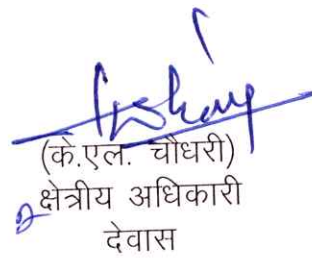 (के.एल. चौधरी)
क्षेत्रीय अधिकारी
देवास